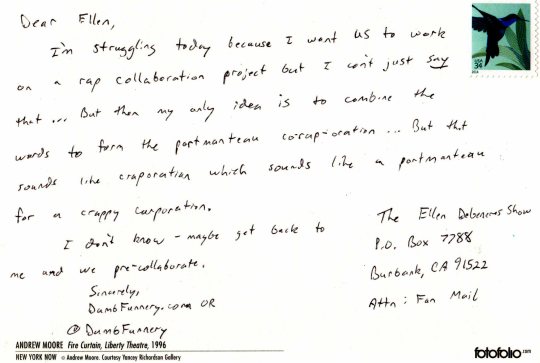 Dear Ellen,
I'm struggling today because I want us to work
on a rap collaboration project but I can't just say
that ... But then my only idea is to combine the
words to form the portmanteau co-rap-oration ... But that
sounds like craporation which sounds like a portmanteau
for a crappy corporation.
I don't know - maybe get back to
me and we pre-collaborate.
Sincerely,
DumbFunnery.com OR
@DumbFunnery
The Ellen Degeneres Show
P.O. Box 7788
Burbank, CA 91522
Attn: Fan Mail
USA
34
ANDREW MOORE Fire Curtain, Liberty Theatre, 1996
NEW YORK NOW © Andrew Moore. Courtesy Yancey Richardson Gallery
fotofolio.com